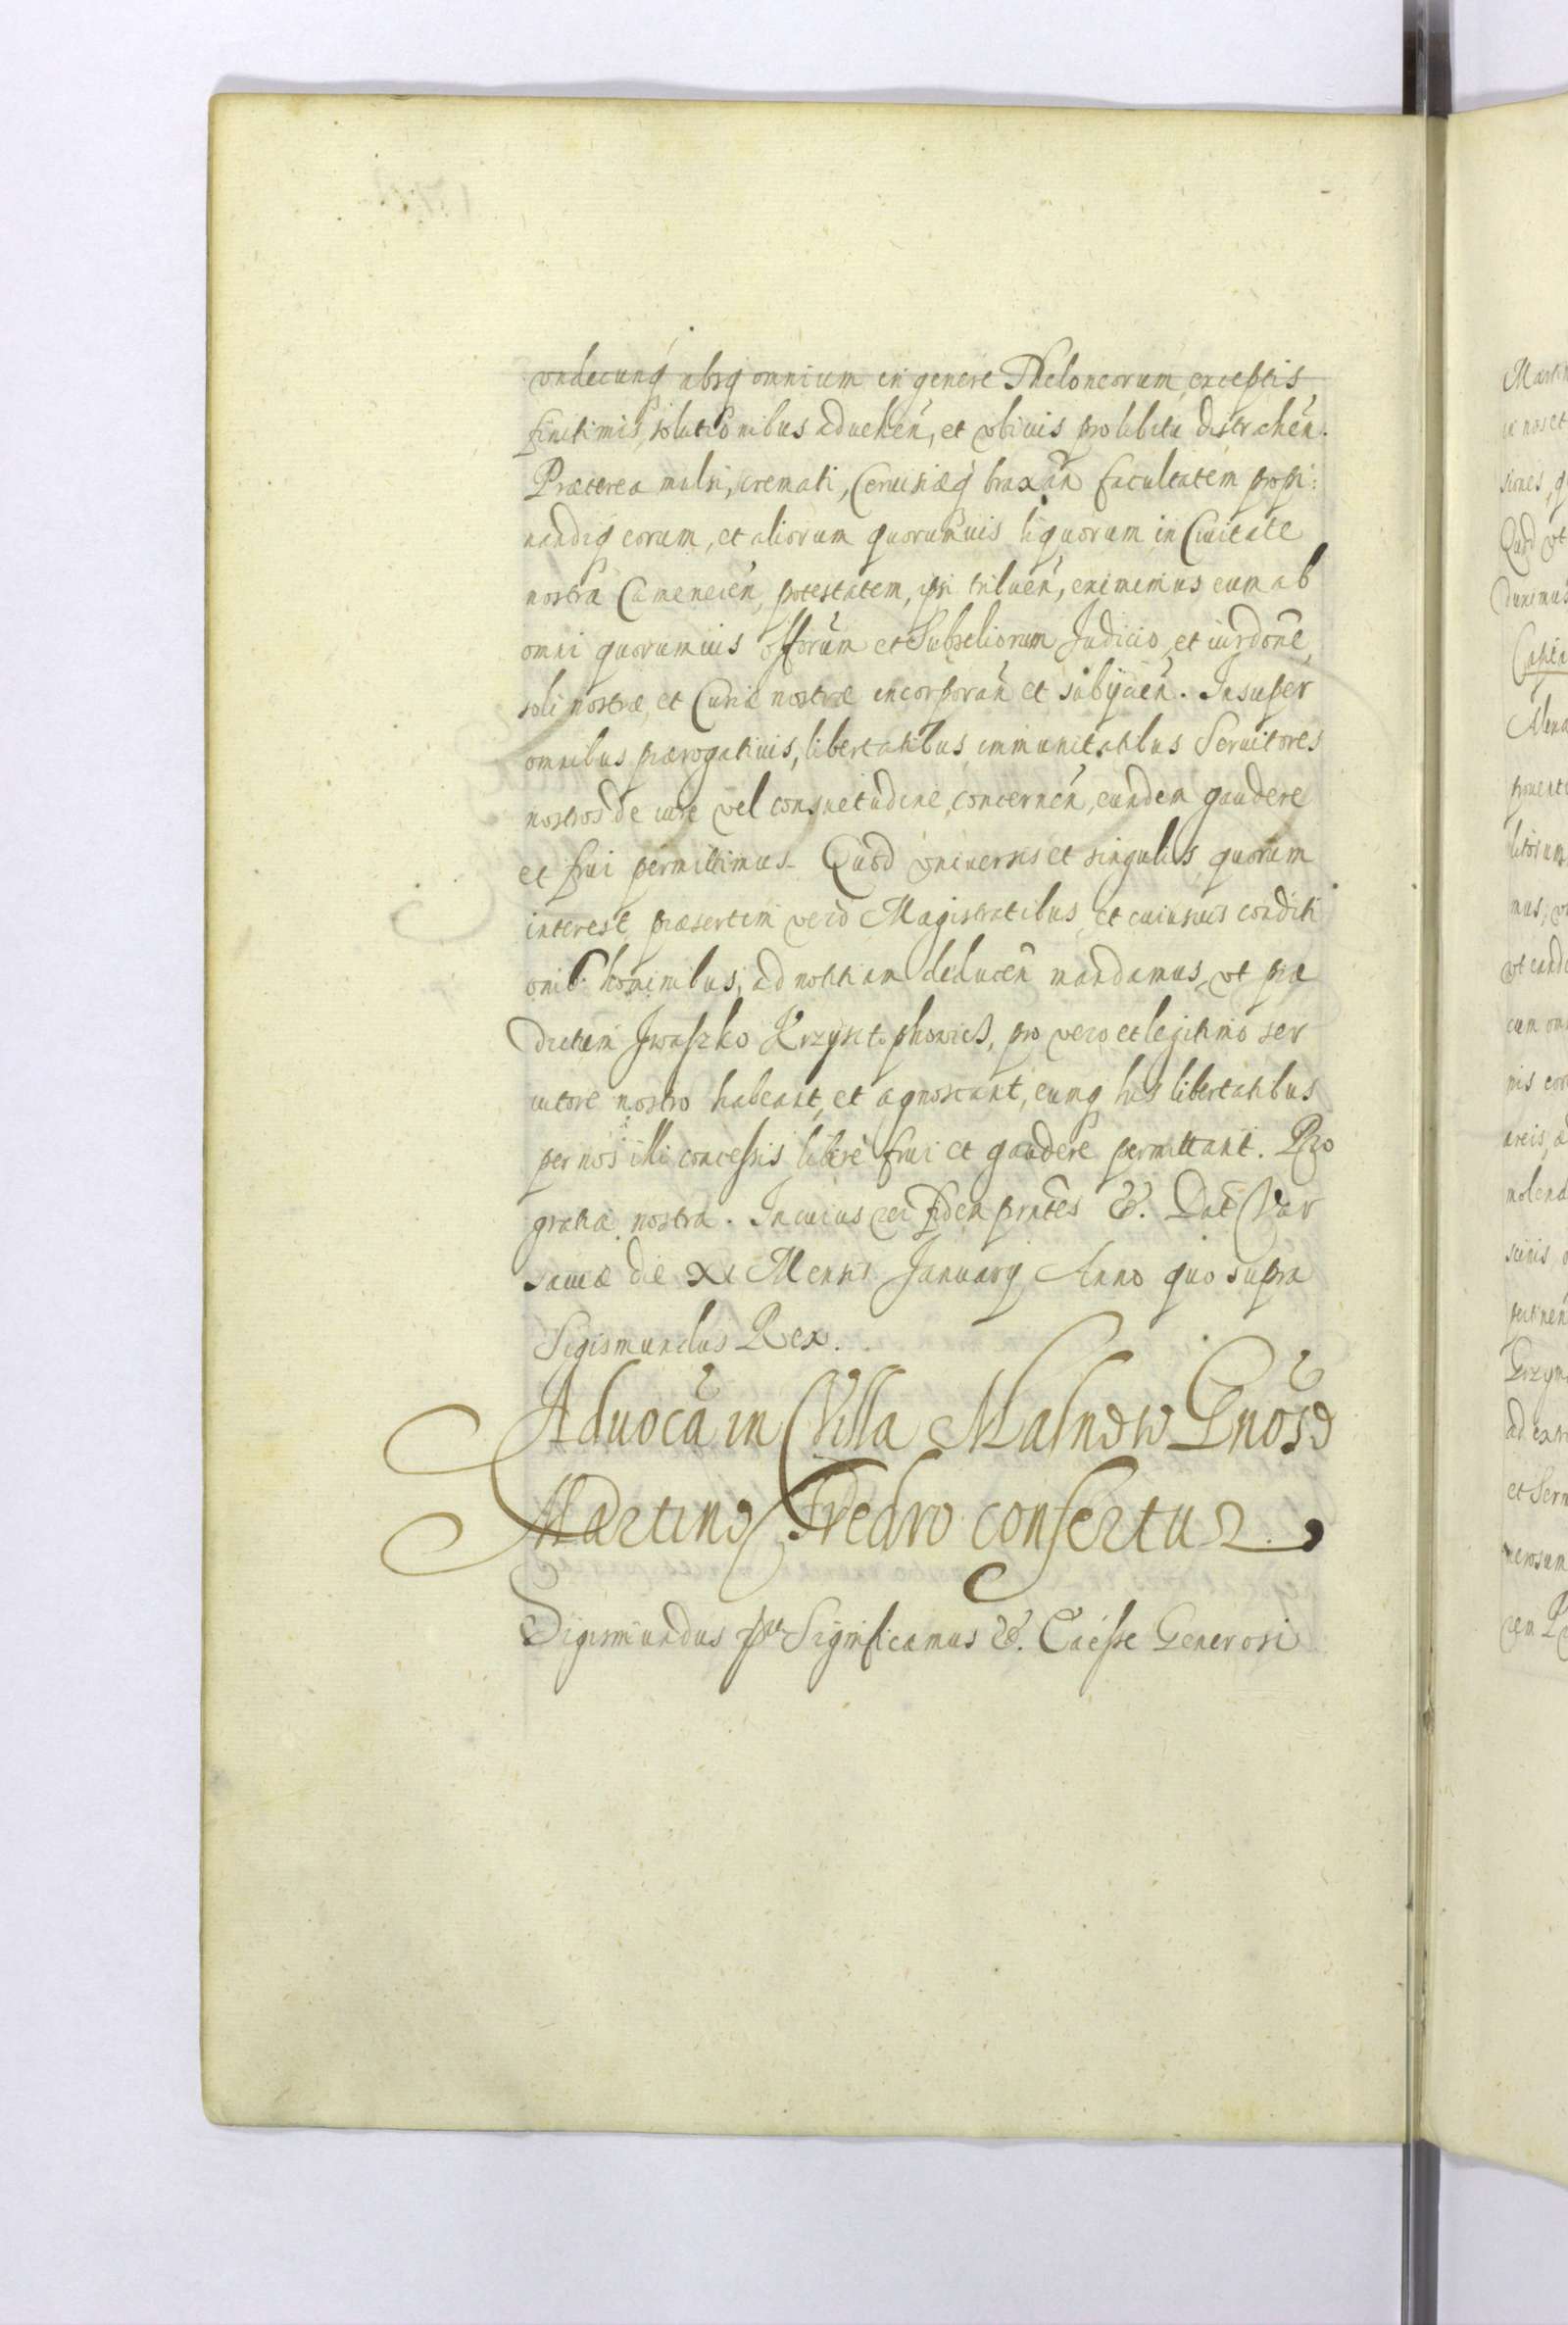 vndecunq̃ absq̃ omnium in genere Theloneorum, exceptis
finitimis, solutionibus aduehen̄, et vbiuis pro libitu distrahen̄.
Præterea mulsi, cremati, Ceruisiæq̃ braxan̄ facultatem propi:
nandiq̃ eorum, et aliorum quorumuis liquorum in Ciuitate
nostra Camenecen̄, potestatem, ipsi tribuen̄, eximimus eum ab
omni quorumuis offorum et Subseliorum Judicio, et iurdone,
soli nostræ et Curiæ nostræ incorporan̄ et subijcien̄. Insuper
omnibus prærogatiuis, libertatibus immunitatibus Seruitores
nostros de iure vel consuetudine, concernen̄, eundem gaudere
et frui permittimus. Quod vniuersis et singulis, quorum
interest, præsertim vero Magistratibus, et cuiusuis conditi
onis hominibus, ad notitiam deducen̄ mandamus, vt præ
dictum Jwaszko Krzysztophowicz, pro vero et legitimo ser
uitore nostro habeant, et agnoscant, eumq̃ his libertatibus
per nos illi concessis libere frui et gaudere permittant. Pro
gratia nostra. In cuius rei fidem prntes &. Dat Var
sauiæ die XX Mensis Januarij Anno quo supra
Sigismundus Rex.
Aduoca in Villa Malnow Gnoso
Martino Fredro confertur.
Sigismundus ptus Significamus &. Etc Generosi
Martin
Quod vt